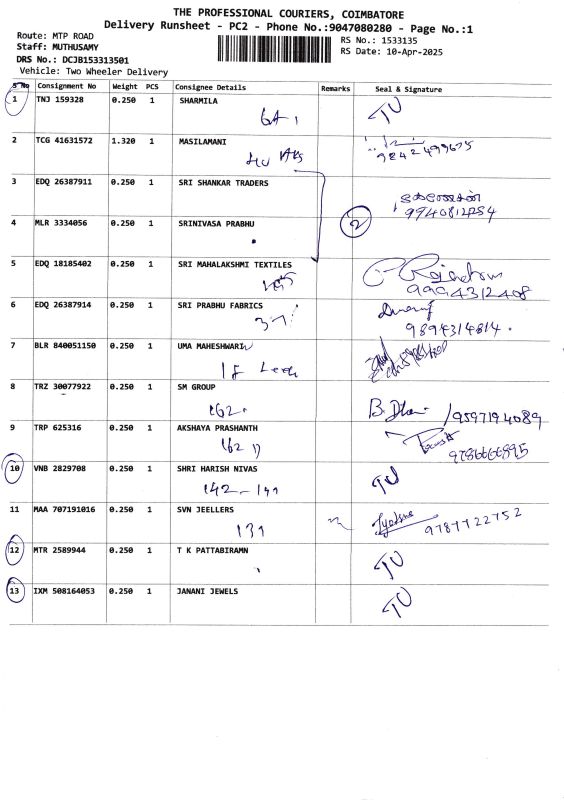 THE PROFESSIONAL COURIERS, COIMBATORE
Delivery Runsheet - PC2 - Phone No.:9047080280 - Page No.:1
Route: MTP ROAD
RS No.: 1533135
Staff: MUTHUSAMY
RS Date: 10-Apr-2025
DRS No.: DCJB153313501
Vehicle: Two Wheeler Delivery
S No Consignment No Weight PCS Consignee Details Remarks Seal & Signature
1 TNJ 159328 0.250 1 SHARMILA
TU
2 TCG 41631572 1.320 1 MASILAMANI
9842499675
3 EDQ 26387911 0.250 1 SRI SHANKAR TRADERS
9940812254
4 MLR 3334056 0.250 1 SRINIVASA PRABHU
2
5 EDQ 18185402 0.250 1 SRI MAHALAKSHMI TEXTILES
9994312408
6 EDQ 26387914 0.250 1 SRI PRABHU FABRICS
37
9894314814.
7 BLR 840051150 0.250 1 UMA MAHESHWARI
8 TRZ 30077922 0.250 1 SM GROUP
162. 9597194089
9 TRP 625316 0.250 1 AKSHAYA PRASHANTH
162 9786666995
10 VNB 2829708 0.250 1 SHRI HARISH NIVAS
TU
142-141
11 MAA 707191016 0.250 1 SVN JEELLERS
131 9787722752
12 MTR 2589944 0.250 1 T K PATTABIRAMN
TU
13 IXM 508164053 0.250 1 JANANI JEWELS
TU